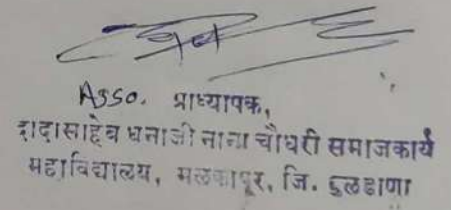 Asso. प्राध्यापक,
दादासाहेब धनाजी नाना चौधरी समाजकार्य
महाविद्यालय, मलकापूर, जि. बुलडाणा